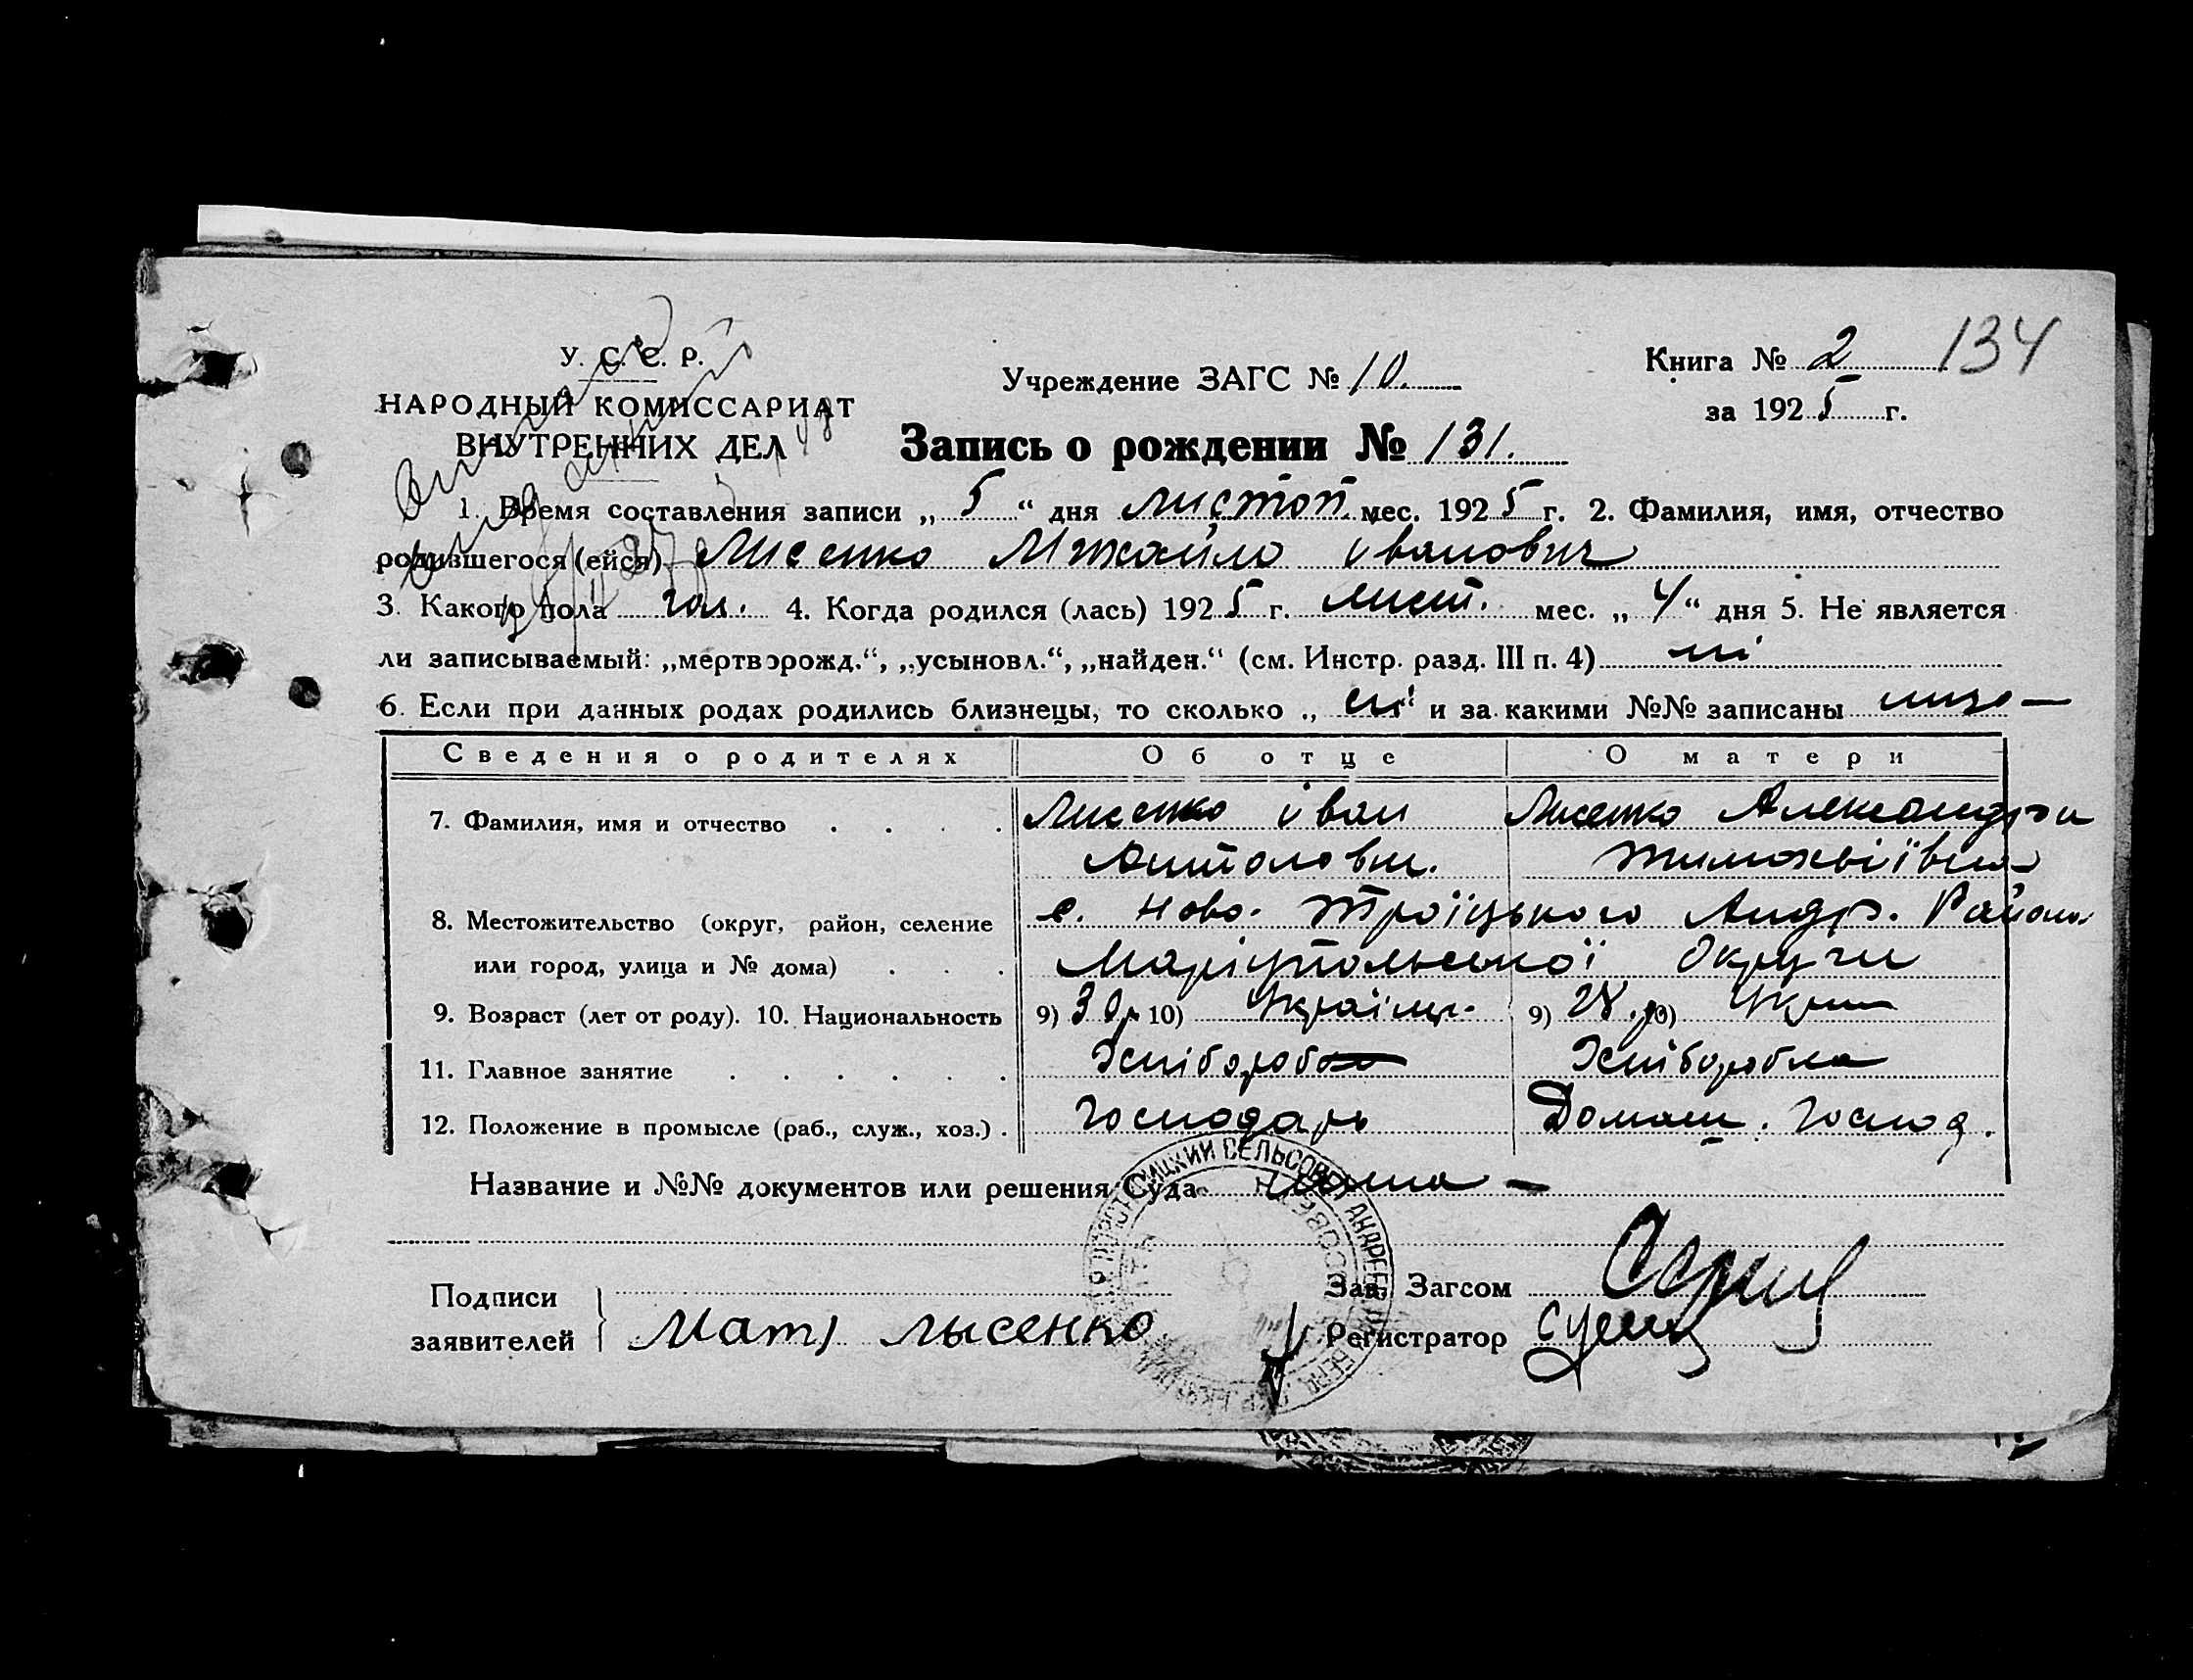 У. С. С. Р.
НАРОДНЫЙ КОМИССАРИАТ
ВНУТРЕННИХ ДЕЛ
Учреждение ЗАГС № 10.
Книга № 2 134
за 1925 г.
Запись о рождении № 131.
1. Время составления записи „ 5 “ дня листоп. мес. 1925 г. 2. Фамилия, имя, отчество
родившегося (ейся) Лисенко Михайло Іванович
3. Какого пола чол. 4. Когда родился (лась) 1925 г. лист. мес. „ 4 “ дня 5. Не является
ли записываемый: „мертворожд.“, „усыновл.“, „найден.“ (см. Инстр. разд. III п. 4) ні
6. Если при данных родах родились близнецы, то сколько „ и за какими №№ записаны
Сведения о родителях Об отце О матери
7. Фамилия, имя и отчество Лисенко Іван Лисенко Александра
Антонови. Тимохвіївна
8. Местожительство (округ, район, селение с. Ново-Троїцького Андр. Району
или город, улица и № дома) Маріупольської Округи
9. Возраст (лет от роду). 10. Национальность 9) 30 р 10) Україн. 9) 28 р. 10) Укр
11. Главное занятие Хлібороб Хлібороб
12. Положение в промысле (раб., служ., хоз.) Господарь Домаш. Господ.
Название и №№ документов или решения Суда
Подписи
заявителей Мать лысенко
Зав. Загсом
Регистратор